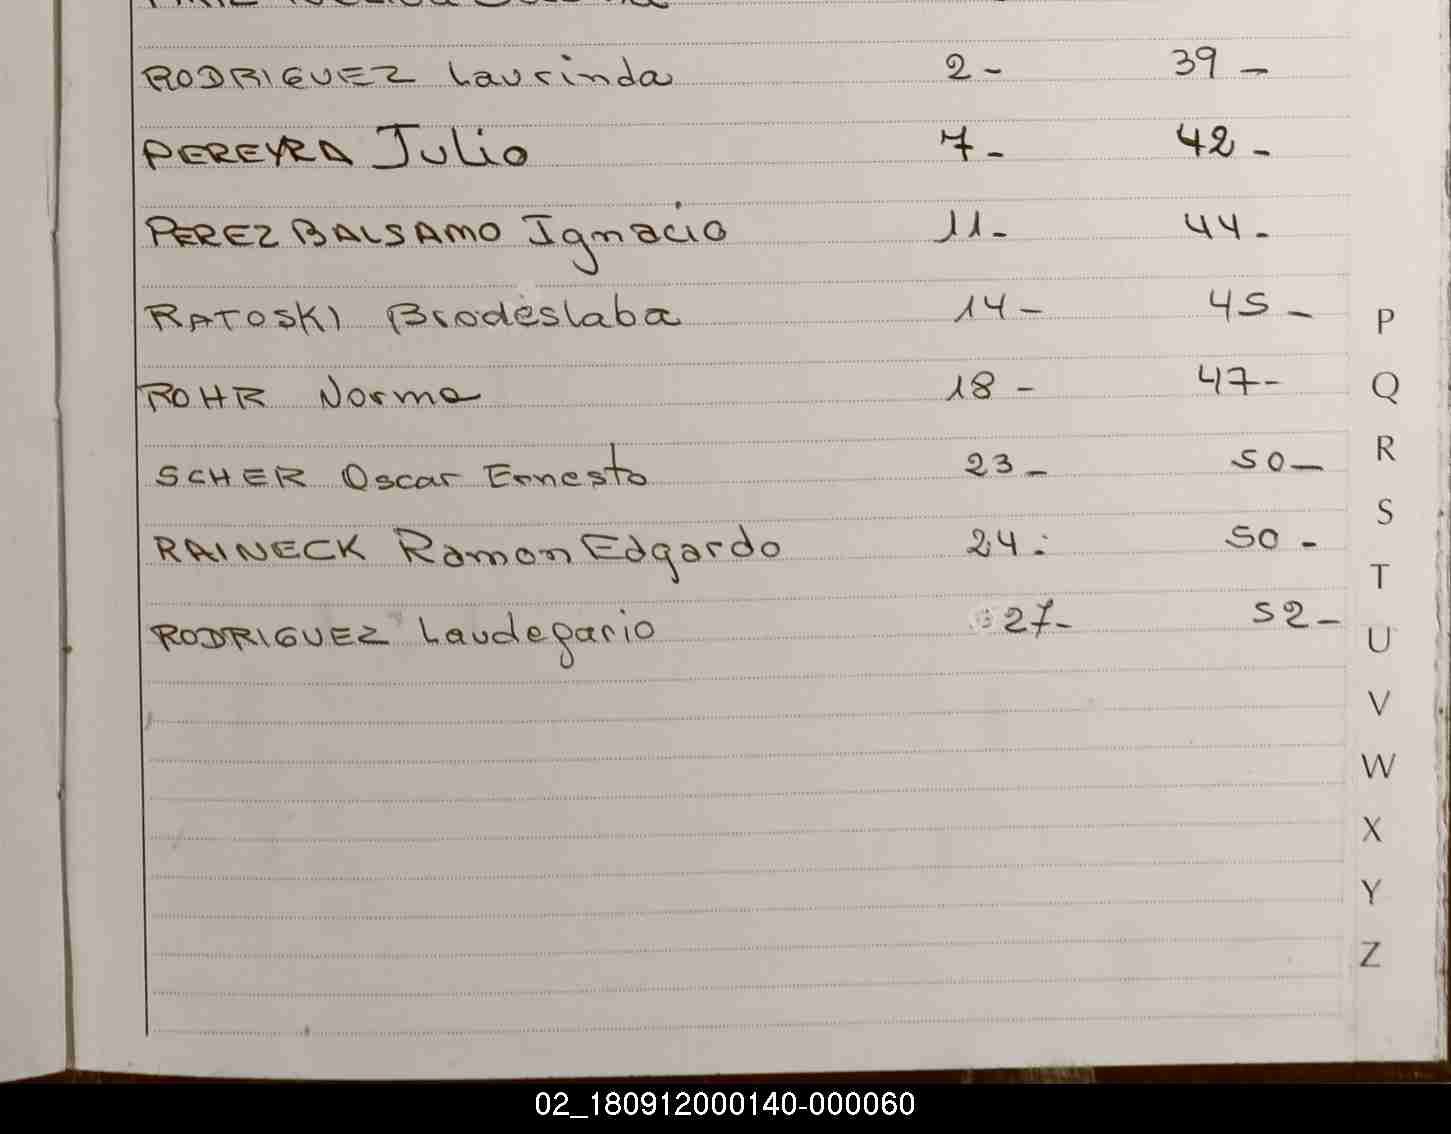 RODRIGUEZ Laurinda 2- 39-
PEREYRA Julio 7- 42-
PEREZ BALSAMO Ignacio 11- 44-
RATOSKI Brodeslaba 14- 45-
ROHR Norma 18- 47-
SCHER Oscar Ernesto 23- 50-
RAINECK Ramon Edgardo 24- 50-
RODRIGUEZ Laudegario 27- 52-
P
Q
R
S
T
U
V
W
X
Y
Z
02_180912000140-000060